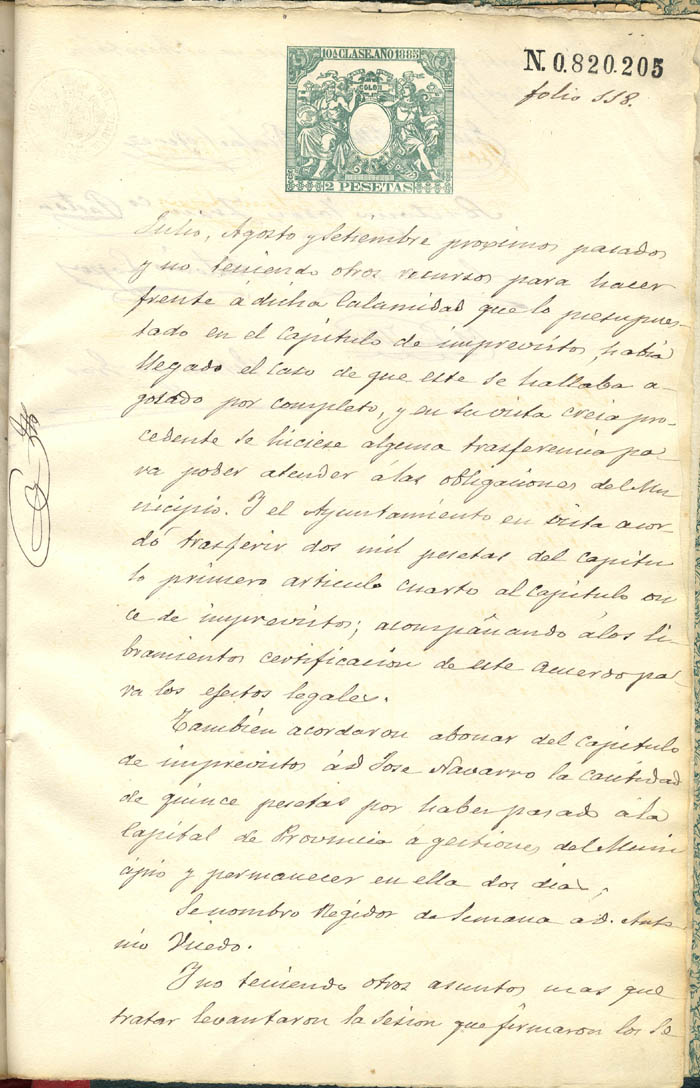 10ª CLASE. AÑO 1885
2 PESETAS
N. 0.820.205
folio 118.
Julio, Agosto y Setiembre proximos pasados
y no teniendo otros recursos para hacer
frente á dicha Calamidad que lo presupues-
tado en el Capitulo de imprevistos, había
llegado el caso de que este se hallaba a-
gotado por completo, y en su vista creia pro-
cedente se hiciese alguna trasferencia pa-
ra poder atender á las obligaciones del Mu-
nicipio. Y el Ayuntamiento en vista acor-
dó trasferir dos mil pesetas del capitu-
lo primero articulo cuarto al Capitulo on
ce de imprevistos; acompañando á los li-
bramientos certificacion de este acuerdo pa-
ra los efectos legales.
También acordaron abonar del Capitulo
de imprevistos á D Jose Navarro la cantidad
de quince pesetas por haber pasado á la
Capital de Provincia á gestiones del Muni
cipio y permanecer en ella dos dias,
Se nombro Regidor de Semana a D. Anto
nio
Y no teniendo otros asuntos mas que
tratar levantaron la Sesion que firmaron los Se